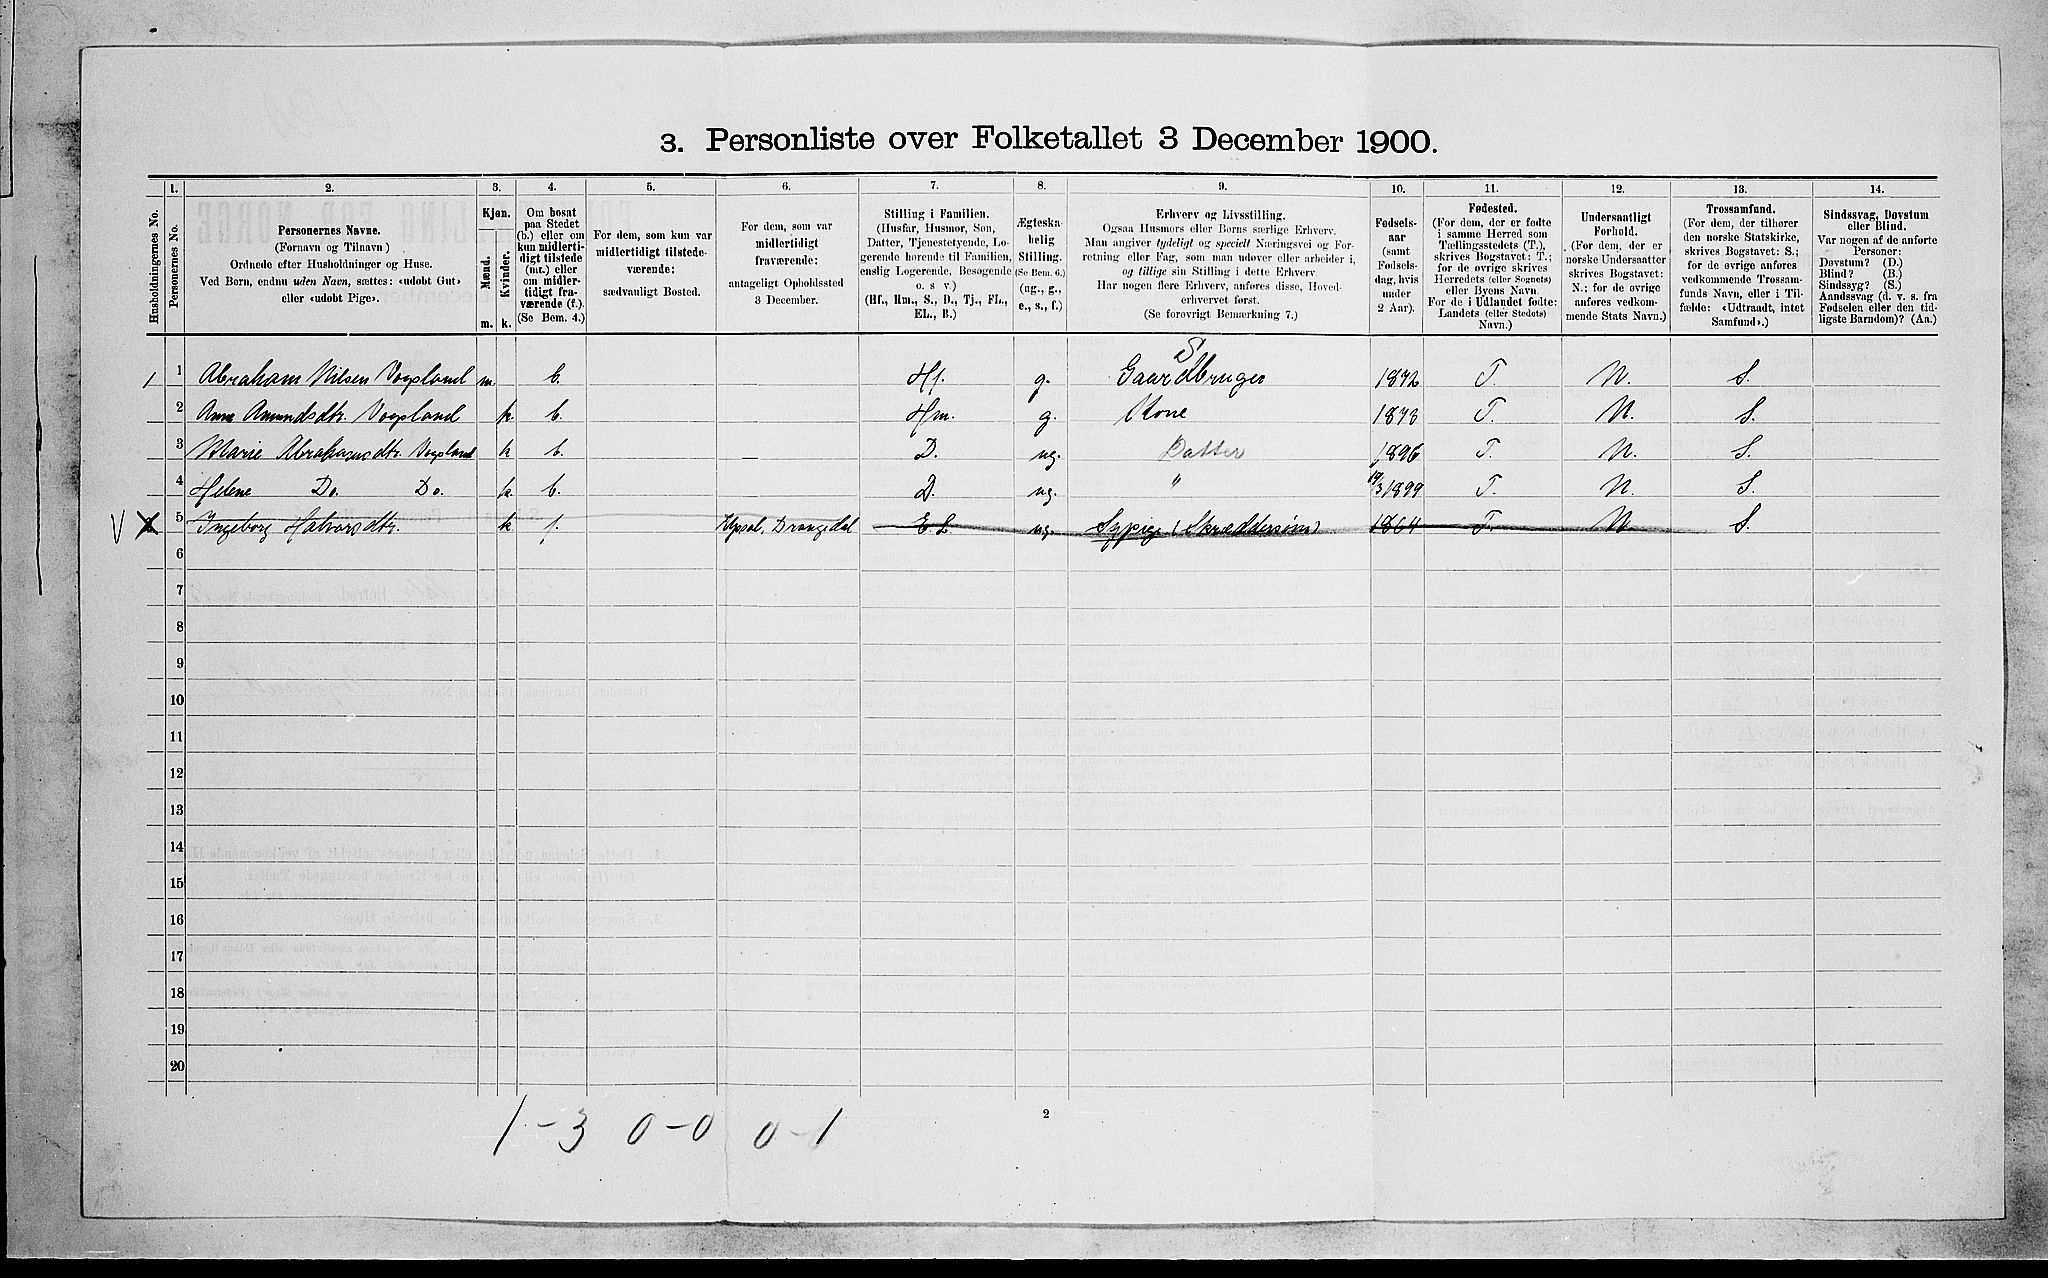 3. Personliste over Folketallet 3 December 1900.
Husholdningernes No.
1.
Personernes No.
2.
Personernes Navne.
(Fornavn og Tilnavn)
Ordnede efter Husholdninger og Huse.
Ved Børn, endnu uden Navn, sættes: «udøbt Gut»
eller «udøbt Pige».
3.
Kjøn.
Mænd.
Kvinder.
m.
k.
4.
Om bosat
paa Stedet
(b.) eller om
kun midlerti-
digt tilstede
(mt.) eller
om midler-
tidigt fra-
værende (f.).
(Se Bem. 4.)
5.
For dem, som kun var
midlertidigt tilstede-
værende:
sædvanligt Bosted.
6.
For dem, som var
midlertidigt
fraværende:
antageligt Opholdssted
3 December.
7.
Stilling i Familien.
(Husfar, Husmor, Søn,
Datter, Tjenestetyende, Lo-
gerende hørende til Familien,
enslig Logerende, Besøgende
o. s v.)
(Hf., Hm., S., D., Tj., FL.,
EL., B.)
8.
Ægteska-
belig
Stilling.
(Se Bem. 6.)
(ug., g.,
e., s., f.)
9.
Erhverv og Livsstilling.
Ogsaa Husmors eller Børns særlige Erhverv.
Man angiver tydeligt og specielt Næringsvei og For-
retning eller Fag, som man udøver eller arbeider i,
og tillige sin Stilling i dette Erhverv.
Har nogen flere Erhverv, anføres disse, Hoved-
erhvervet først.
(Se forøvrigt Bemærkning 7.)
10.
Fødsels-
aar
(samt
Fødsels-
dag, hvis
under
2 Aar).
11.
Fødested.
(For dem, der er fødte
i samme Herred som
Tællingsstedets (T.),
skrives Bogstavet: T.;
for de øvrige skrives
Herredets (eller Sognets)
eller Byens Navn.
For de i Udlandet fødte:
Landets (eller Stedets)
Navn.)
12.
Undersaatligt
Forhold.
(For dem, der er
norske Undersaatter
skrives Bogstavet:
N.; for de øvrige
anføres vedkom-
mende Stats Navn.)
13.
Trossamfund.
(For dem, der tilhører
den norske Statskirke,
skrives Bogstavet: S.;
for de øvrige anføres
vedkommende Trossam-
funds Navn, eller i Til-
fælde: «Udtraadt, intet
Samfund».)
14.
Sindssvag, Døvstum
eller Blind.
Var nogen af de anførte
Personer:
Døvstum? (D.)
Blind? (B.)
Sindssyg? (S.)
Aandssvag (d. v. s. fra
Fødselen eller den tid-
ligste Barndom)? (Aa.)
1 1 Abraham Nilsen Vogsland m. b. Hf. g. Gaardbruger S 1872 T. N. S.
2 Anne Amundsdtr. Vogsland k b. Hm. g. Kone 1873 T. N. S.
3 Marie Abrahamsdtr. Vogsland k b. – D. ug. Datter 1896 T. N. S.
4 Helene Do. Do. k. b. D. ug. " 19/3 1899 T. N. S.
V X 5 Ingeborg Halvorsdtr. k f. Drangedal E L ug. Sypige (Skræddersøm) 1864 T. N. S.
6
7
8
9
10
11
12
13
14
15
16
17
18
19
20
1 – 3 0 – 0 0 – 1
2